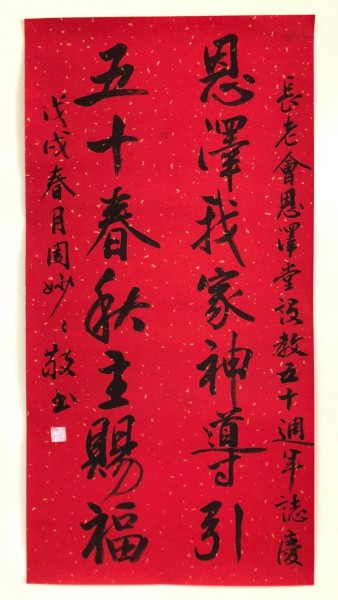 長老會恩澤堂設教五十週年誌慶
恩澤我家神導引
五十春秋主賜福
戊戌春月周妙妙敬书